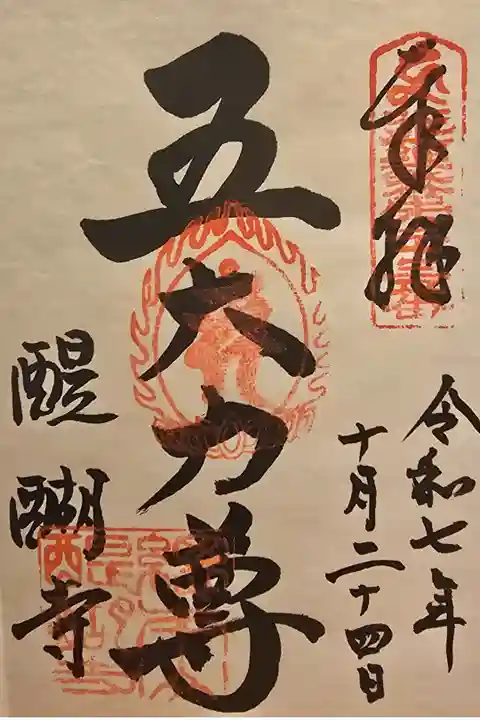 奉拝
令和七年
十月二十四日
五大力尊
醍醐寺